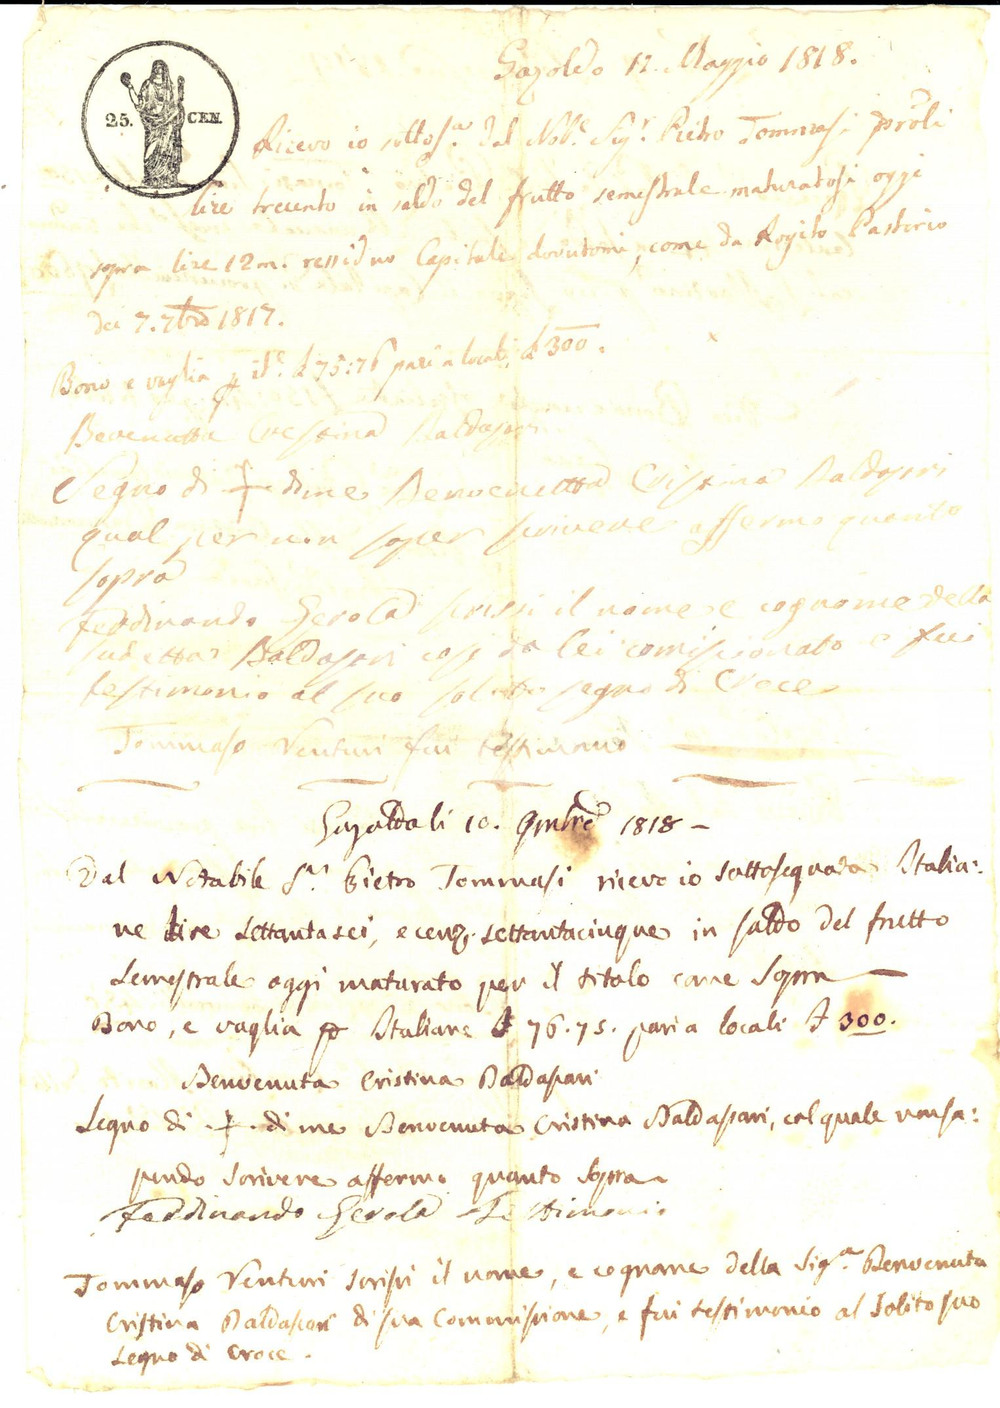 25. CEN.
Gazoldo 12. Maggio 1818.
Ricevo io sottos.ª dal Nob.e Sig.r Pietro Tommasi
lire trecento in saldo del frutto semestrale maturatosi oggi
sopra lire 12m. residuo Capitale dovutomi, come da Rogito Pastorio
dei 7. 7bre 1817.
Bono e vaglia p it.e £ 75:76 pari a locali £ 300.
Benvenutta Crestina Baldasari
Segno di + di me Benvenutta Cristina Baldasari
qual per non saper scrivere affermo quanto
sopra
Ferdinando Gerola scrissi il nome e cognome della
sudetta Baldasari così da lei comissionato e fui
testimonio al suo solito segno di Croce
Tommaso Venturi fui testimonio
Gazoldo li 10. 9mbre 1818 –
Dal Notabile S.r Pietro Tommasi ricevo io sottosegnata Italia:
ne lire settantasei, e cen. settantacinque in saldo del frutto
semestrale oggi maturato per il titolo come sopra
Bono, e vaglia p Italiane £ 76.75. pari a locali £ 300.
Benvenuta Cristina Baldasari
Segno di + di me Benvenuta Cristina Baldasari, col quale non sa:
pendo scrivere affermo quanto sopra
Ferdinando Gerola Testimonio
Tommaso Venturi scrissi il nome, e cognome della Sig.ª Benvenuta
Cristina Baldasari di sua Commissione, e fui testimonio al solito suo
segno di Croce.